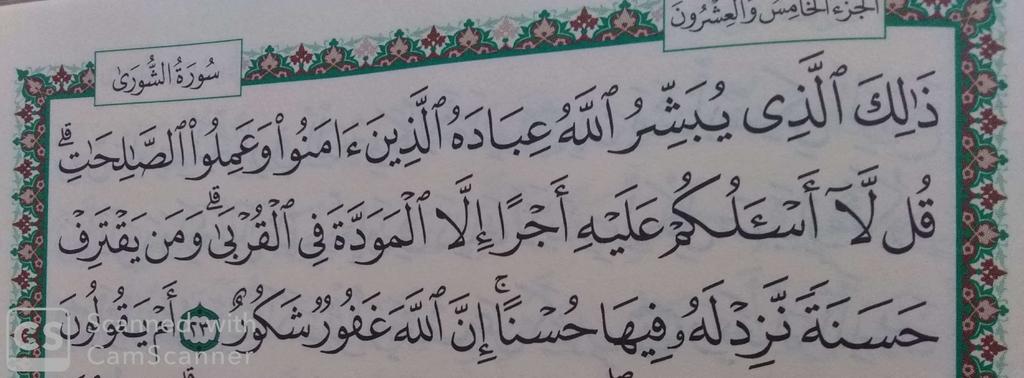 الجزء الخامس والعشرون
سُورَةُ الشُّورَىٰ
ذَٰلِكَ ٱلَّذِى يُبَشِّرُ ٱللَّهُ عِبَادَهُ ٱلَّذِينَ ءَامَنُوا۟ وَعَمِلُوا۟ ٱلصَّٰلِحَٰتِ ۗ
قُل لَّآ أَسْـَٔلُكُمْ عَلَيْهِ أَجْرًا إِلَّا ٱلْمَوَدَّةَ فِى ٱلْقُرْبَىٰ ۗ وَمَن يَقْتَرِفْ
حَسَنَةً نَّزِدْ لَهُۥ فِيهَا حُسْنًا ۚ إِنَّ ٱللَّهَ غَفُورٌ شَكُورٌ ٢٣ أَمْ يَقُولُونَ
CS Scanned with
CamScanner